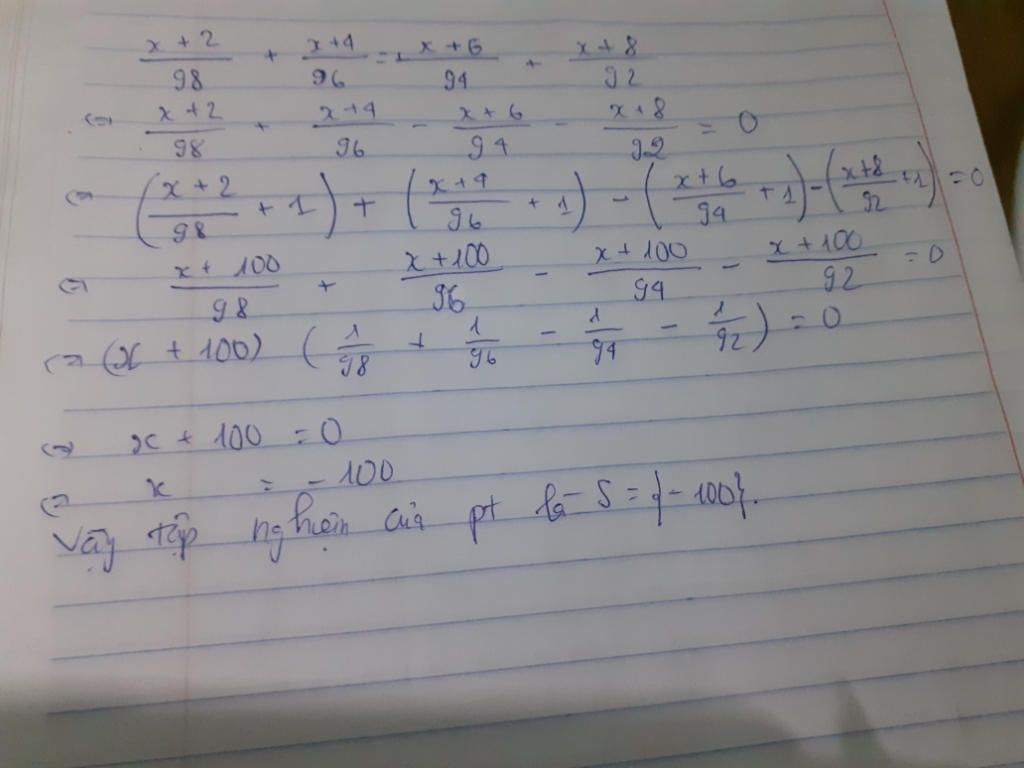 x + 2 / 98 + x+4 / 96 = x + 6 / 94 + x + 8 / 92
⇔ x + 2 / 98 + x+4 / 96 - x + 6 / 94 - x+8 / 92 = 0
⇔ (x + 2 / 98 + 1) + (x+4 / 96 + 1) - (x+6 / 94 + 1) - (x+8 / 92 + 1) = 0
⇔ x + 100 / 98 + x + 100 / 96 - x + 100 / 94 - x + 100 / 92 = 0
⇔ (x + 100) (1/98 + 1/96 - 1/94 - 1/92) = 0
⇔ x + 100 = 0
⇔ x = - 100
Vậy tập nghiệm của pt là S = {- 100}.